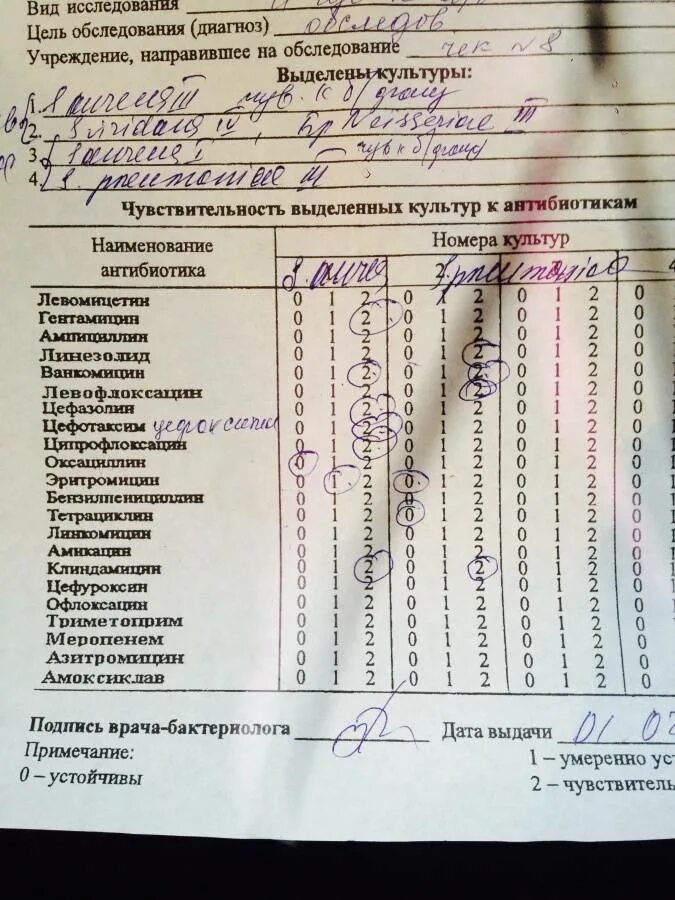 Вид исследования
Цель обследования (диагноз) обследов.
Учреждение, направившее на обследование чек №8
Выделены культуры:
1. S aureus III чув. к б/фагу
2. S viridans IV, Гр Neisseriae III
3. S aureus I чув к б/фагу
4. S. pneumoniae III
Чувствительность выделенных культур к антибиотикам
Наименование антибиотика Номера культур
S. aureus 2 S. pneumoniae 4
Левомицетин 0 1 2 0 1 2 0 1 2 0
Гентамицин 0 1 2 0 1 2 0 1 2 0
Ампициллин 0 1 2 0 1 2 0 1 2 0
Линезолид 0 1 2 0 1 2 0 1 2 0
Ванкомицин 0 1 2 0 1 2 0 1 2 0
Левофлоксацин 0 1 2 0 1 2 0 1 2 0
Цефазолин 0 1 2 0 1 2 0 1 2 0
Цефотаксим 0 1 2 0 1 2 0 1 2 0
Ципрофлоксацин 0 1 2 0 1 2 0 1 2 0
Оксациллин 0 1 2 0 1 2 0 1 2 0
Эритромицин 0 1 2 0 1 2 0 1 2 0 1
Бензилпенициллин 0 1 2 0 1 2 0 1 2 0 1
Тетрациклин 0 1 2 0 1 2 0 1 2 0 1
Линкомицин 0 1 2 0 1 2 0 1 2 0 1
Амикацин 0 1 2 0 1 2 0 1 2 0 1
Клиндамицин 0 1 2 0 1 2 0 1 2 0 1
Цефуроксин 0 1 2 0 1 2 0 1 2 0
Офлоксацин 0 1 2 0 1 2 0 1 2 0
Триметоприм 0 1 2 0 1 2 0 1 2 0
Меропенем 0 1 2 0 1 2 0 1 2 0
Азитромицин 0 1 2 0 1 2 0 1 2 0
Амоксиклав 0 1 2 0 1 2 0 1 2 0
Подпись врача-бактериолога Дата выдачи 01 02
Примечание: 1 – умеренно ус
0 – устойчивы 2 – чувствитель